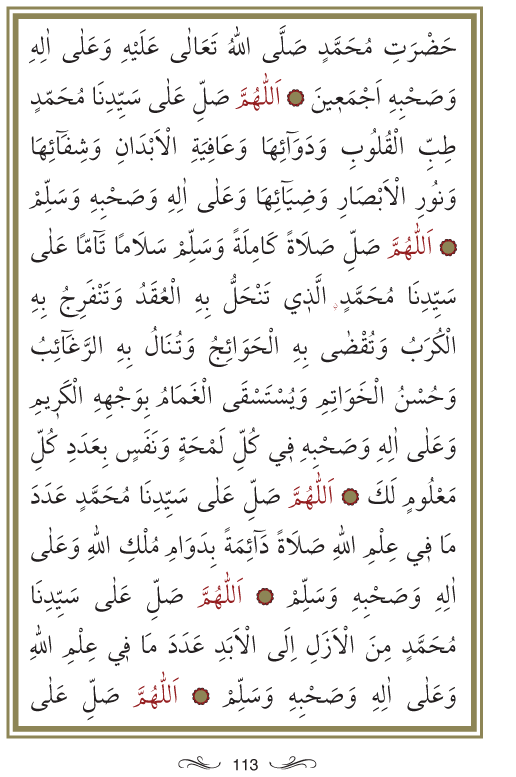 حَضْرَتِ مُحَمَّدٍ صَلَّى اللهُ تَعَالٰى عَلَيْهِ وَعَلٰى اٰلِهِ
وَصَحْبِهِ اَجْمَعٖينَ ۞ اَللّٰهُمَّ صَلِّ عَلٰى سَيِّدِنَا مُحَمَّدٍ
طِبِّ الْقُلُوبِ وَدَوَٓائِهَا وَعَافِيَةِ الْاَبْدَانِ وَشِفَٓائِهَا
وَنُورِ الْاَبْصَارِ وَضِيَٓائِهَا وَعَلٰى اٰلِهِ وَصَحْبِهِ وَسَلِّمْ
۞ اَللّٰهُمَّ صَلِّ صَلَاةً كَامِلَةً وَسَلِّمْ سَلَامًا تَٓامًّا عَلٰى
سَيِّدِنَا مُحَمَّدٍ الَّذٖي تَنْحَلُّ بِهِ الْعُقَدُ وَتَنْفَرِجُ بِهِ
الْكُرَبُ وَتُقْضٰى بِهِ الْحَوَائِجُ وَتُنَالُ بِهِ الرَّغَٓائِبُ
وَحُسْنُ الْخَوَاتِمِ وَيُسْتَسْقَى الْغَمَامُ بِوَجْهِهِ الْكَرٖيمِ
وَعَلٰى اٰلِهِ وَصَحْبِهِ فٖي كُلِّ لَمْحَةٍ وَنَفَسٍ بِعَدَدِ كُلِّ
مَعْلُومٍ لَكَ ۞ اَللّٰهُمَّ صَلِّ عَلٰى سَيِّدِنَا مُحَمَّدٍ عَدَدَ
مَا فٖي عِلْمِ اللهِ صَلَاةً دَٓائِمَةً بِدَوَامِ مُلْكِ اللهِ وَعَلٰى
اٰلِهِ وَصَحْبِهِ وَسَلِّمْ ۞ اَللّٰهُمَّ صَلِّ عَلٰى سَيِّدِنَا
مُحَمَّدٍ مِنَ الْاَزَلِ اِلَى الْاَبَدِ عَدَدَ مَا فٖي عِلْمِ اللهِ
وَعَلٰى اٰلِهِ وَصَحْبِهِ وَسَلِّمْ ۞ اَللّٰهُمَّ صَلِّ عَلٰى
113